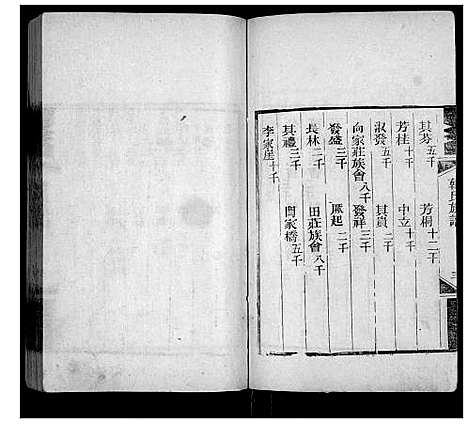 其芬五千 芳桐十二千
芳桂十千 中立十千
淑發五千 其貞二千
向家莊族會八千 發祥三千
發盛三千 厥起二千
長林二千 田莊族會八千
其禮三千 閆家橋五千
李家崖十千
氏族譜